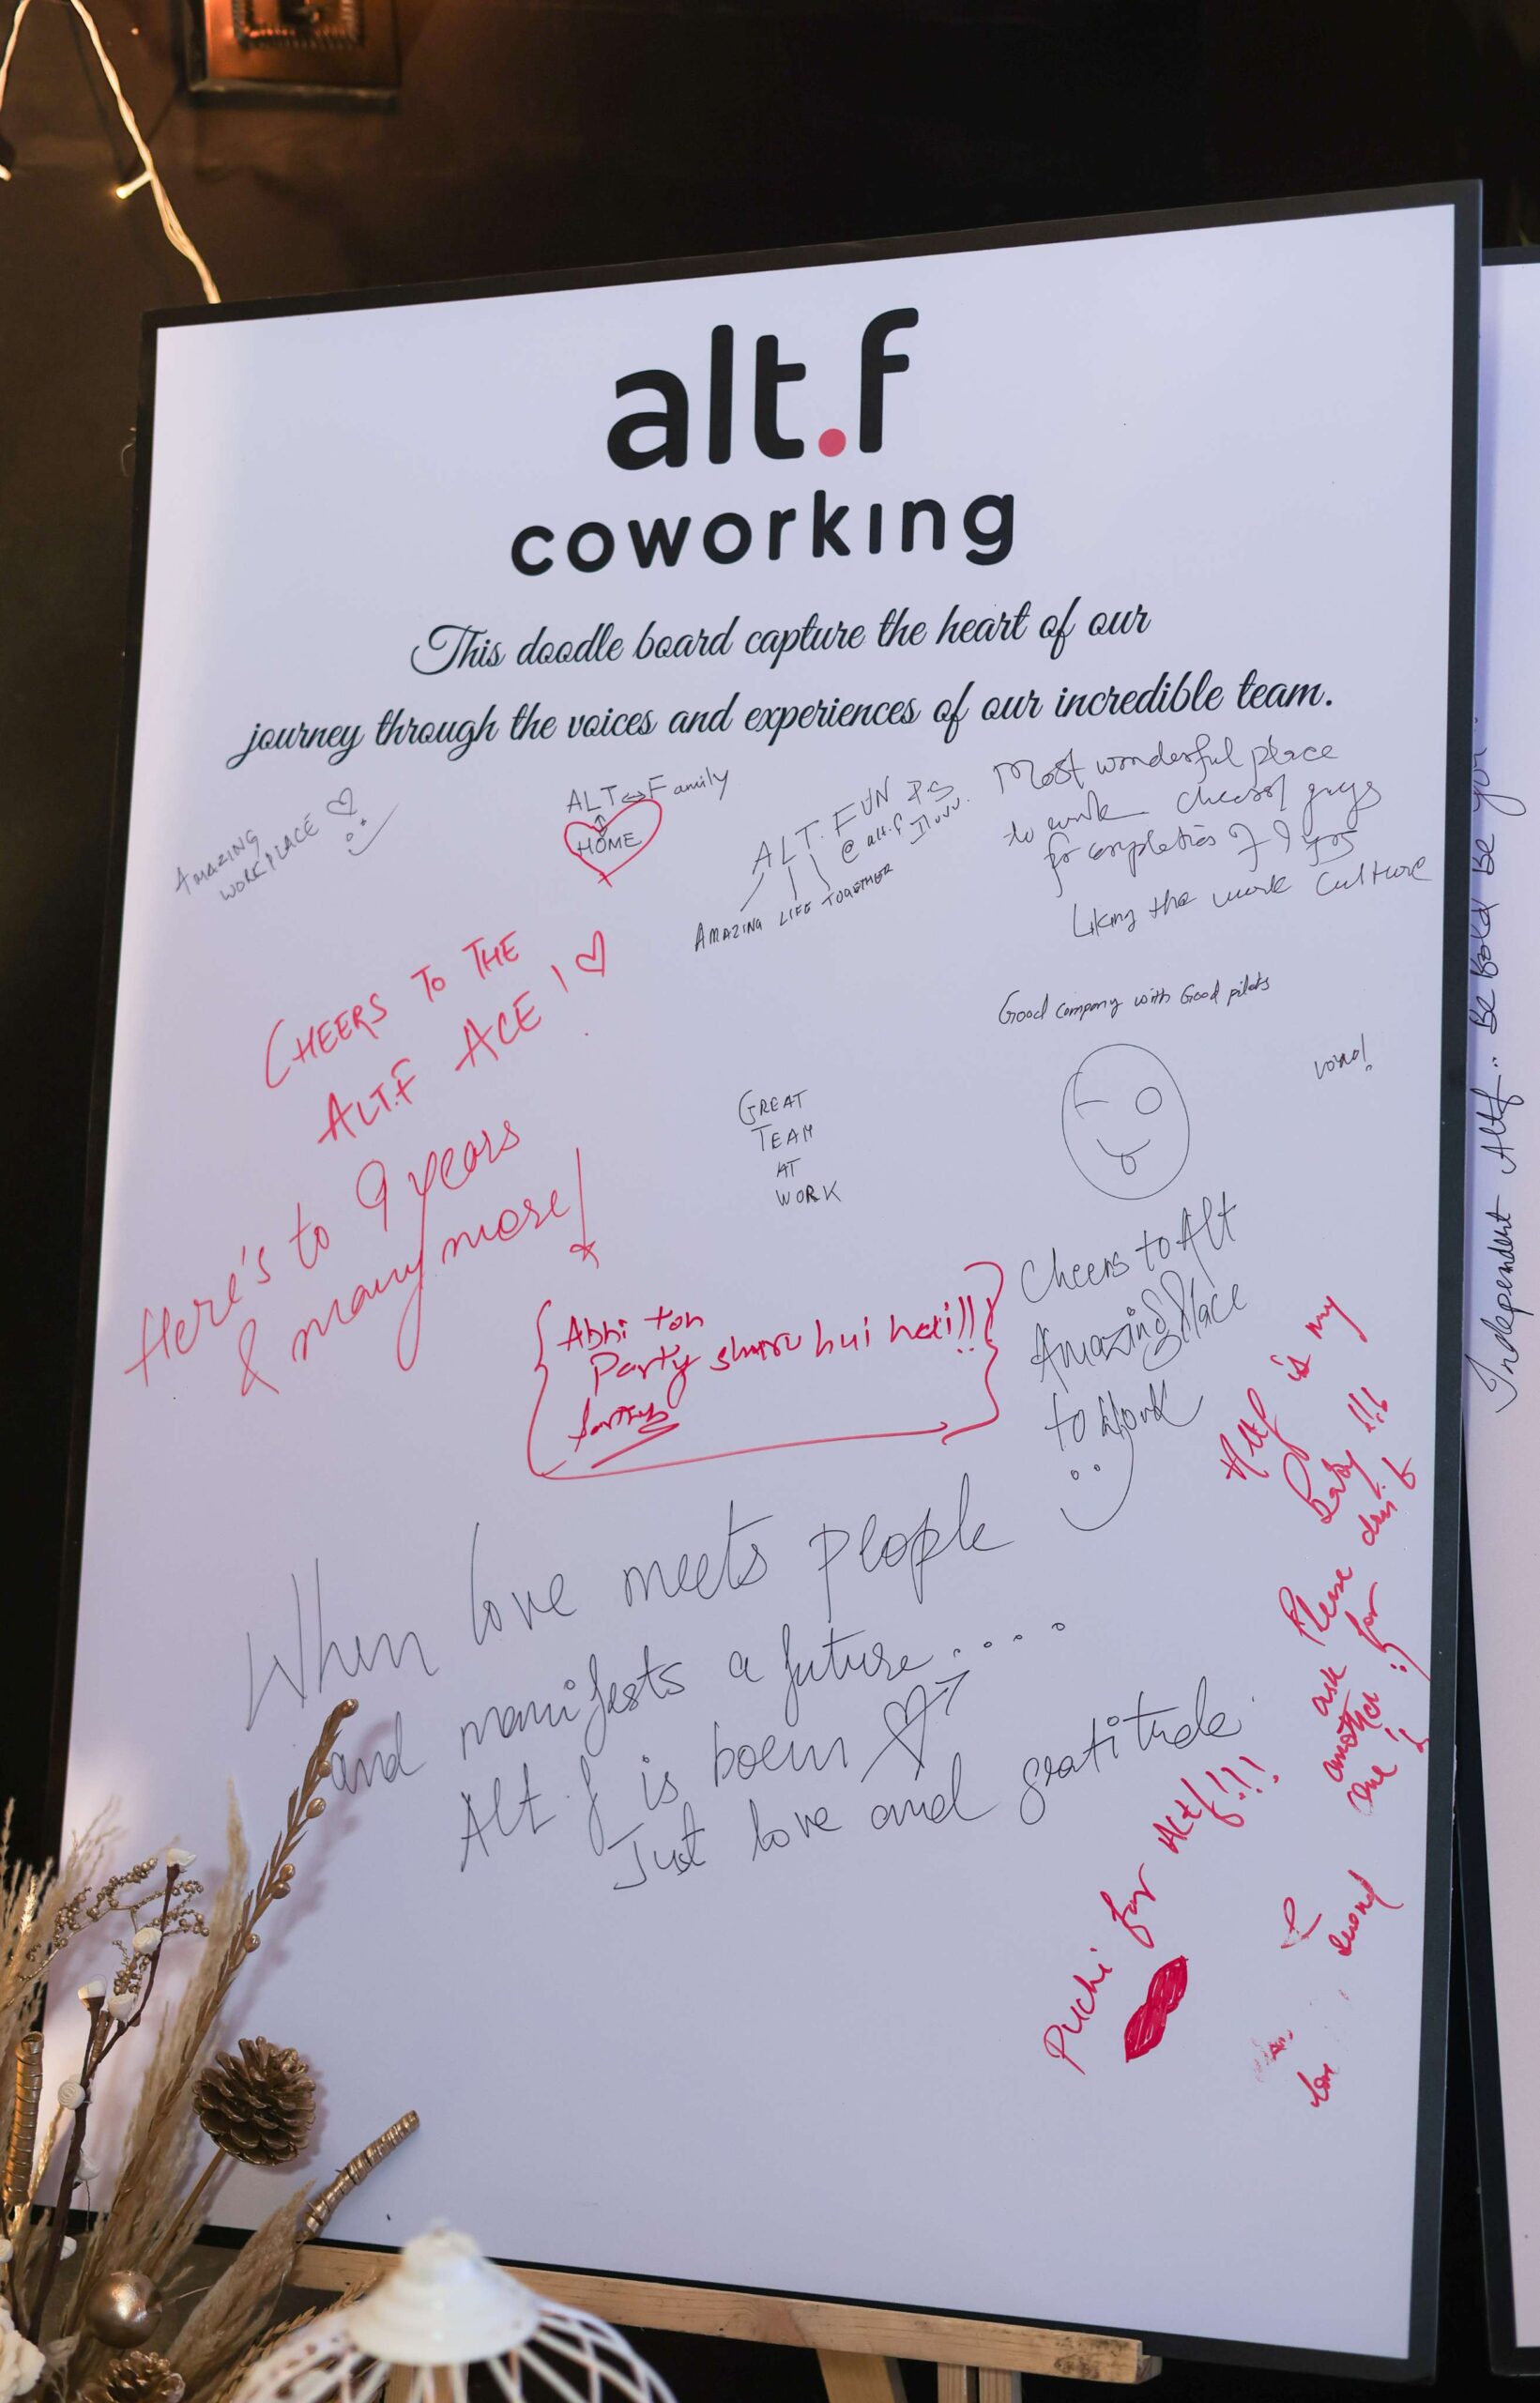 alt.f
coworking
This doodle board capture the heart of our
journey through the voices and experiences of our incredible team.
AMAZING
WORKPLACE
ALT Family
HOME
ALT. FUN IS
@ alt.f
AMAZING LIFE TOGETHER
Most wonderful place
to work cheers guys
for completies of 9 yrs
Liking the work culture
CHEERS TO THE
ALT.F ACE!
Good company with Good pilots
GREAT
TEAM
AT
WORK
Here's to 9 years
& many more!
Abhi toh
Party shuru hui hai!!
Cheers to Alt
Amazing Place
to Work
Altf is my
baby!!!
Please don't
ask for
another
one!
When love meets people
and manifests a future.....
Alt.f is boern
Just love and gratitude.
Puchi for Altf!!!
I second
Independent Altf.. Be Bold Be you